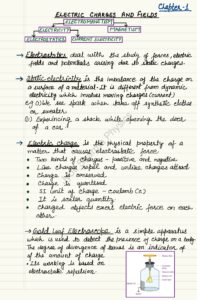 Chapter-1
ELECTRIC CHARGES AND FIELDS
ELECTROMAGNETISM
ELECTRICITY
MAGNETISM
ELECTROSTATICS
CURRENT ELECTRICITY
→ Electrostatics deal with the study of forces, electric
fields and potentials arising due to static charges.
→ Static electricity is the imbalance of the charge on
a surface of a material. It is different from dynamic
electricity which involves moving charges (current)
eg: 1) We see spark when take off synthetic clothes
or sweater
2) Experiencing a shock while opening the door
of a car.
→ Electric charge is the physical property of a
matter that causes electrostatic force
• Two kinds of charges - positive and negative
• Like charges repel and unlike charges attract
• Charge is conserved
• Charge is quantised
• SI unit of charge - coulomb (C)
• It is scalar quantity
• Charged objects exert electric force on each
other
→ Gold Leaf Electroscope is a simple apparatus
which is used to detect the presence of charge on a body.
The degree of divergence of leaves is an indicator of
the amount of charge
• Its working is based on
electrostatic repulsion